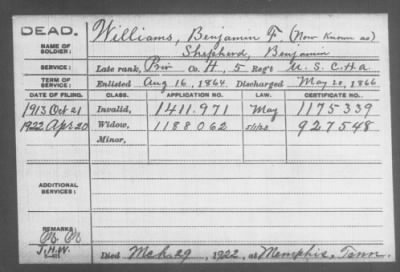 DEAD.
Williams, Benjamin F (Now Known as)
NAME OF SOLDIER: Shepherd, Benjamin
SERVICE: Late rank, Priv Co. H, 5 Reg't U.S.C.H.a.
TERM OF SERVICE: Enlisted Aug 16, 1864. Discharged May 20, 1866
DATE OF FILING. CLASS. APPLICATION NO. LAW. CERTIFICATE NO.
1913 Oct 21 Invalid, 1411.971 May 1175339
1922 Apr. 20 Widow, 1188062 5/1/20 927548
Minor,
ADDITIONAL SERVICES:
REMARKS:
Died Mch. 29, 1922, at Memphis, Tenn.